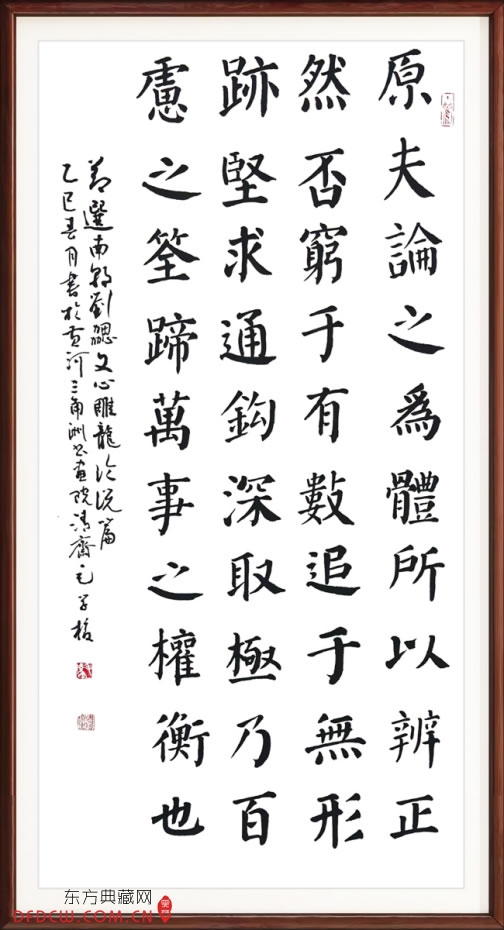 原夫論之爲體所以辨正
然否窮于有數追于無形
跡堅求通鈎深取極乃百
慮之筌蹄萬事之權衡也
節選南朝劉勰文心雕龍论说篇
乙巳春月書於黄河三角洲书画院清齋毛学
东方典藏网
DFDCW.COM.CN